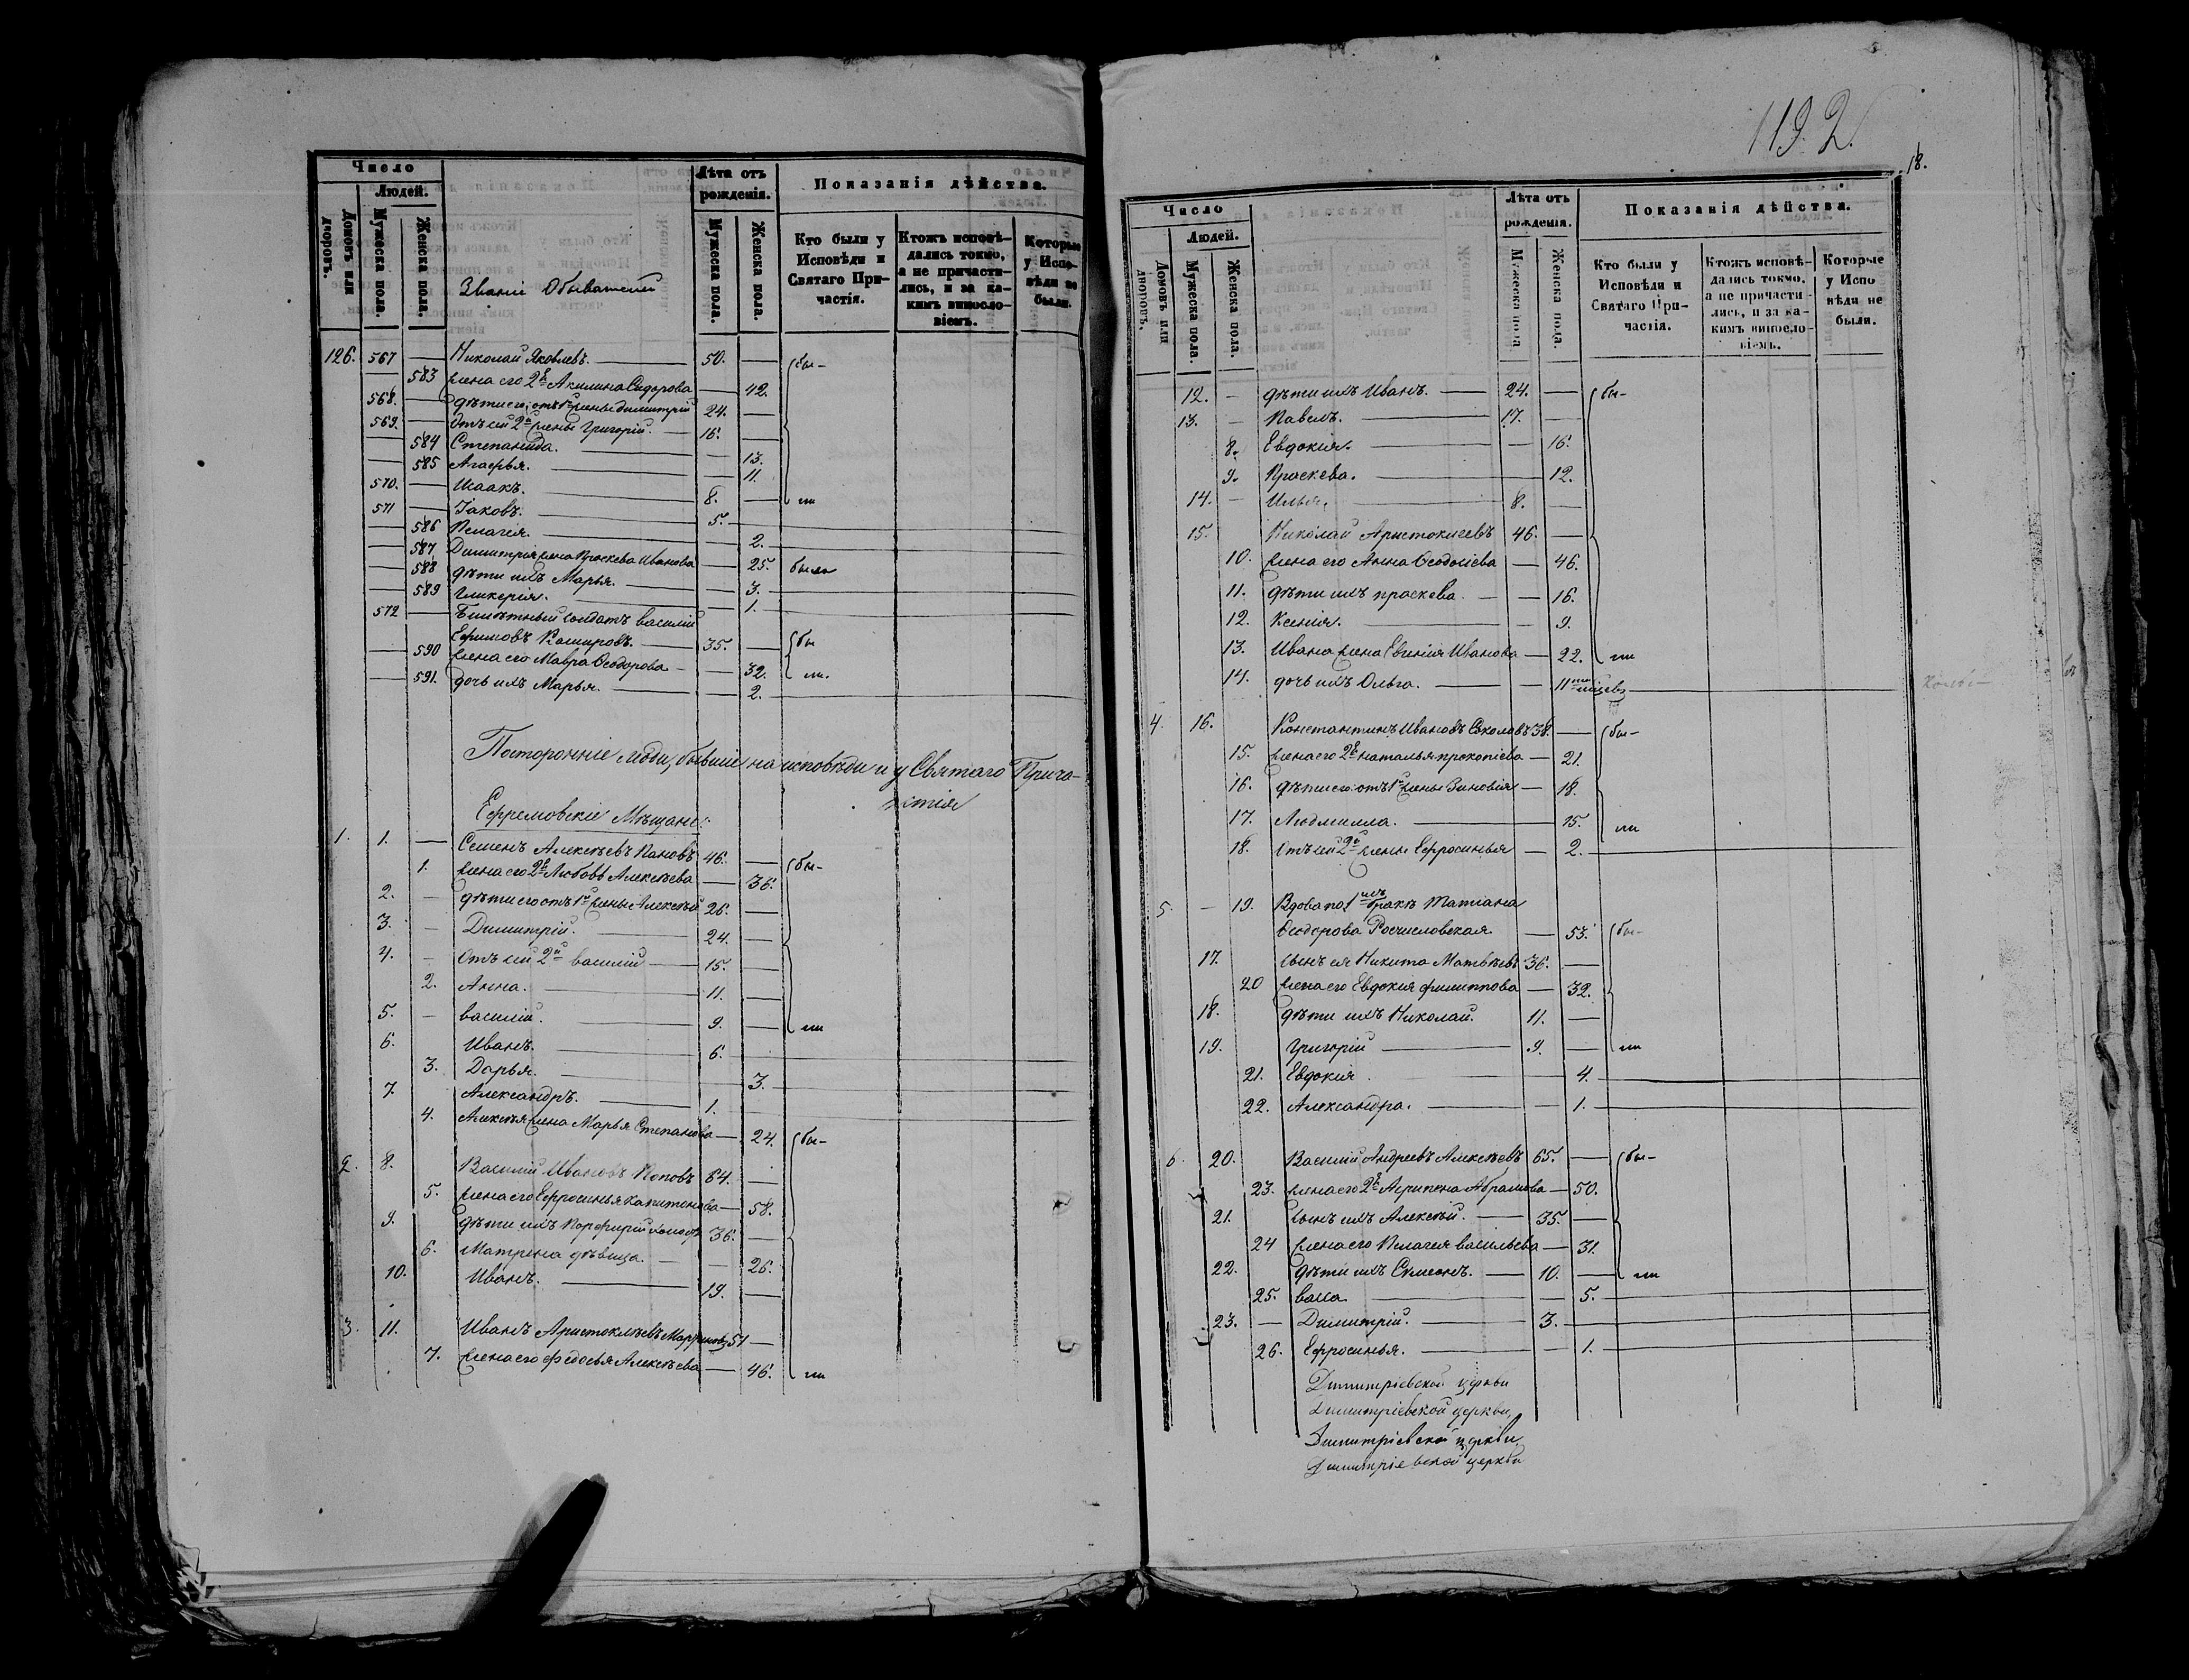 Число
Людей.
Домовъ или дворовъ.
Мужеска пола.
Женска пола.
Званіе Обывателей
Лѣта отъ рожденія.
Мужеска пола.
Женска пола.
Показанія дѣйства.
Кто были у Исповѣди и Святаго Причастія.
Ктожъ исповѣдались токмо, а не причастились, и за какимъ винословіемъ.
Которые у Исповѣди не были.
126. 567 — Николай Яковлевъ. — 50. — бы-
— 583 жена его 2я Акилина Сидорова — 42.
568. — дѣти его отъ 1й жены Димитрій 24. —
569. — Отъ сей 2й жены Григорій. — 16. —
— 584 Степанида. — 13.
— 585 Агафья. — 11.
570. — Исаакъ. — 8. — ли
571 — Іаковъ. — 5. —
— 586 Пелагея. — 2.
— 587 Димитрія жена Праскева Иванова — 25. была
— 588 дѣти ихъ Марья. — 3.
— 589 Гликерія. — 1.
572 — Билетный солдатъ Василій
Ефимовъ Кашировъ. — 35. — бы
— 590 жена его Мавра Ѳеодорова — 32. ли.
— 591. дочь ихъ Марья. — 2.
Посторонніе люди, бывшіе на исповѣди и у Святаго Прича-
стія
Ефремовскіе Мѣщане:
1. 1. — Семенъ Алексѣевъ Пановъ 46. — бы-
1. жена его 2я Любовь Алексѣева — 36.
2. — дѣти его отъ 1й жены Алексѣй 26. —
3. — Димитрій. — 24. —
4. — Отъ сей 2й Василій — 15. —
2. Анна. — 11. —
5. — Василій. — 9. — ли
6. Иванъ. — 6.
3. Дарья. — 3.
7. Александръ. — 1.
4. Алексѣя жена Марья Степанова — 24. бы-
2. 8. Василій Ивановъ Поповъ 64. —
5. жена его Ефросинья Капитонова — 58.
9. дѣти ихъ Порфирій холос. 36. —
6. Матрена дѣвица. — 26.
10. Иванъ. — 19. —
3. 11. Иванъ Аристоклѣевъ 51 —
7. жена его Федосья Алексѣева — 46. ли
119 2.
18.
Число
Людей.
Домовъ или дворовъ.
Мужеска пола.
Женска пола.
Лѣта отъ рожденія.
Мужеска пола
Женска пола.
Показанія дѣйства.
Кто были у Исповѣди и Святаго Причастія.
Ктожъ исповѣдались токмо, а не причастились, и за какимъ винословіемъ.
Которые у Исповѣди не были.
12. — дѣти ихъ Иванъ. — 24. — бы-
13. — Павелъ. — 17. —
8. Евдокія. — 16.
9. Праскева. — 12.
14. — Илья. — 8. —
15. Николай Аристоклиевъ 46. —
10. жена его Анна Ѳеодосіева — 46.
11. дѣти ихъ праскева. — 16.
12. Ксенія. — 9.
13. Ивана жена Евгенія Иванова — 22. ли
14. дочь ихъ Ольга. — 11ти мѣсяцевъ
4. 16. Константинъ Ивановъ Соколовъ 38. — бы-
15. жена его 2я наталья прокопіева — 21.
16. дѣти его отъ 1й жены Зиновія — 18.
17. Людмилла. — 15. ли
18. Отъ сей 2й жены Ефросинья — 2.
5. — 19. Вдова по 1мъ бракѣ Матіана
Ѳеодорова — 53. бы-
17. сынъ ея Никита Матвѣевъ 36. —
20 жена его Евдокия филиппова — 32.
18. дѣти ихъ Николай. 11. —
19. Григорій — 9. — ли
21. Евдокия — 4.
22. Александра. — 1.
6. 20. Василій Андреевъ Алексѣевъ 65. — бы-
23. жена его 2я Агрипена Абрамова — 50.
21. сынъ ихъ Алексѣй. — 35. —
24 жена его Пелагея васильева — 31.
22. дѣти ихъ Симеонъ. — 10. — ли
25. васса — 5.
23. — Димитрій. — 3.
26. Ефросинья. — 1.
Димитріевской церкви
Димитріевской церкви,
Димитріевской церкви,
Димитріевской церкви